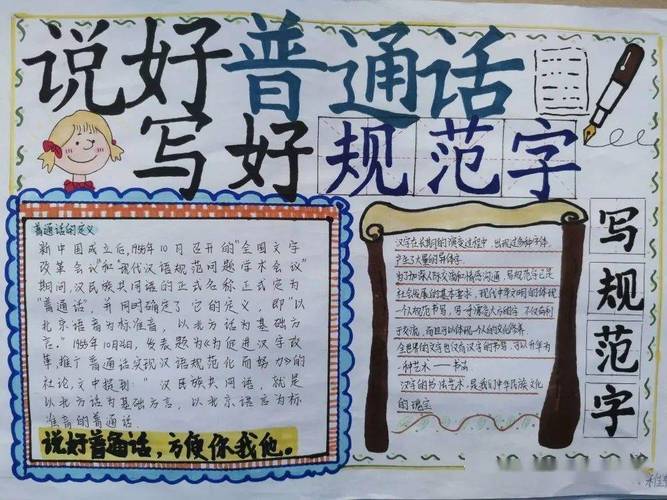 说好普通话
写好规范字
普通话的定义
新中国成立后,1955年10月召开的"全国文字
改革会议"和"现代汉语规范问题学术会议"
期间,汉民族共同语的正式名称正式定为
"普通话",并同时确定了它的定义,即"以
北京语音为标准音,以北方话为基础方
言。"1955年10月26日,发表题为《为促进汉字改
革,推广普通话实现汉语规范化而努力》的
社论,文中提到:"汉民族共同语,就是
以北方话为基础方言,以北京语音为标
准音的普通话
说好普通话,方便你我他。
汉字在长期的演变过程中,出现过多种字体,
产生了大量的异体字。
为了加深人际交流和情感沟通,写规范字已是
社会发展的基本要求,现代中华文明的体现
一个人规范书写,写一手漂亮人方的字,不仅有利
于交流,而且可以体现一个人的文化修养
全世界的文字也仅有汉字的书写,可以升华为
一种艺术——书法
汉字的书法艺术,是我们中华民族文化
的瑰宝
写
规
范
字